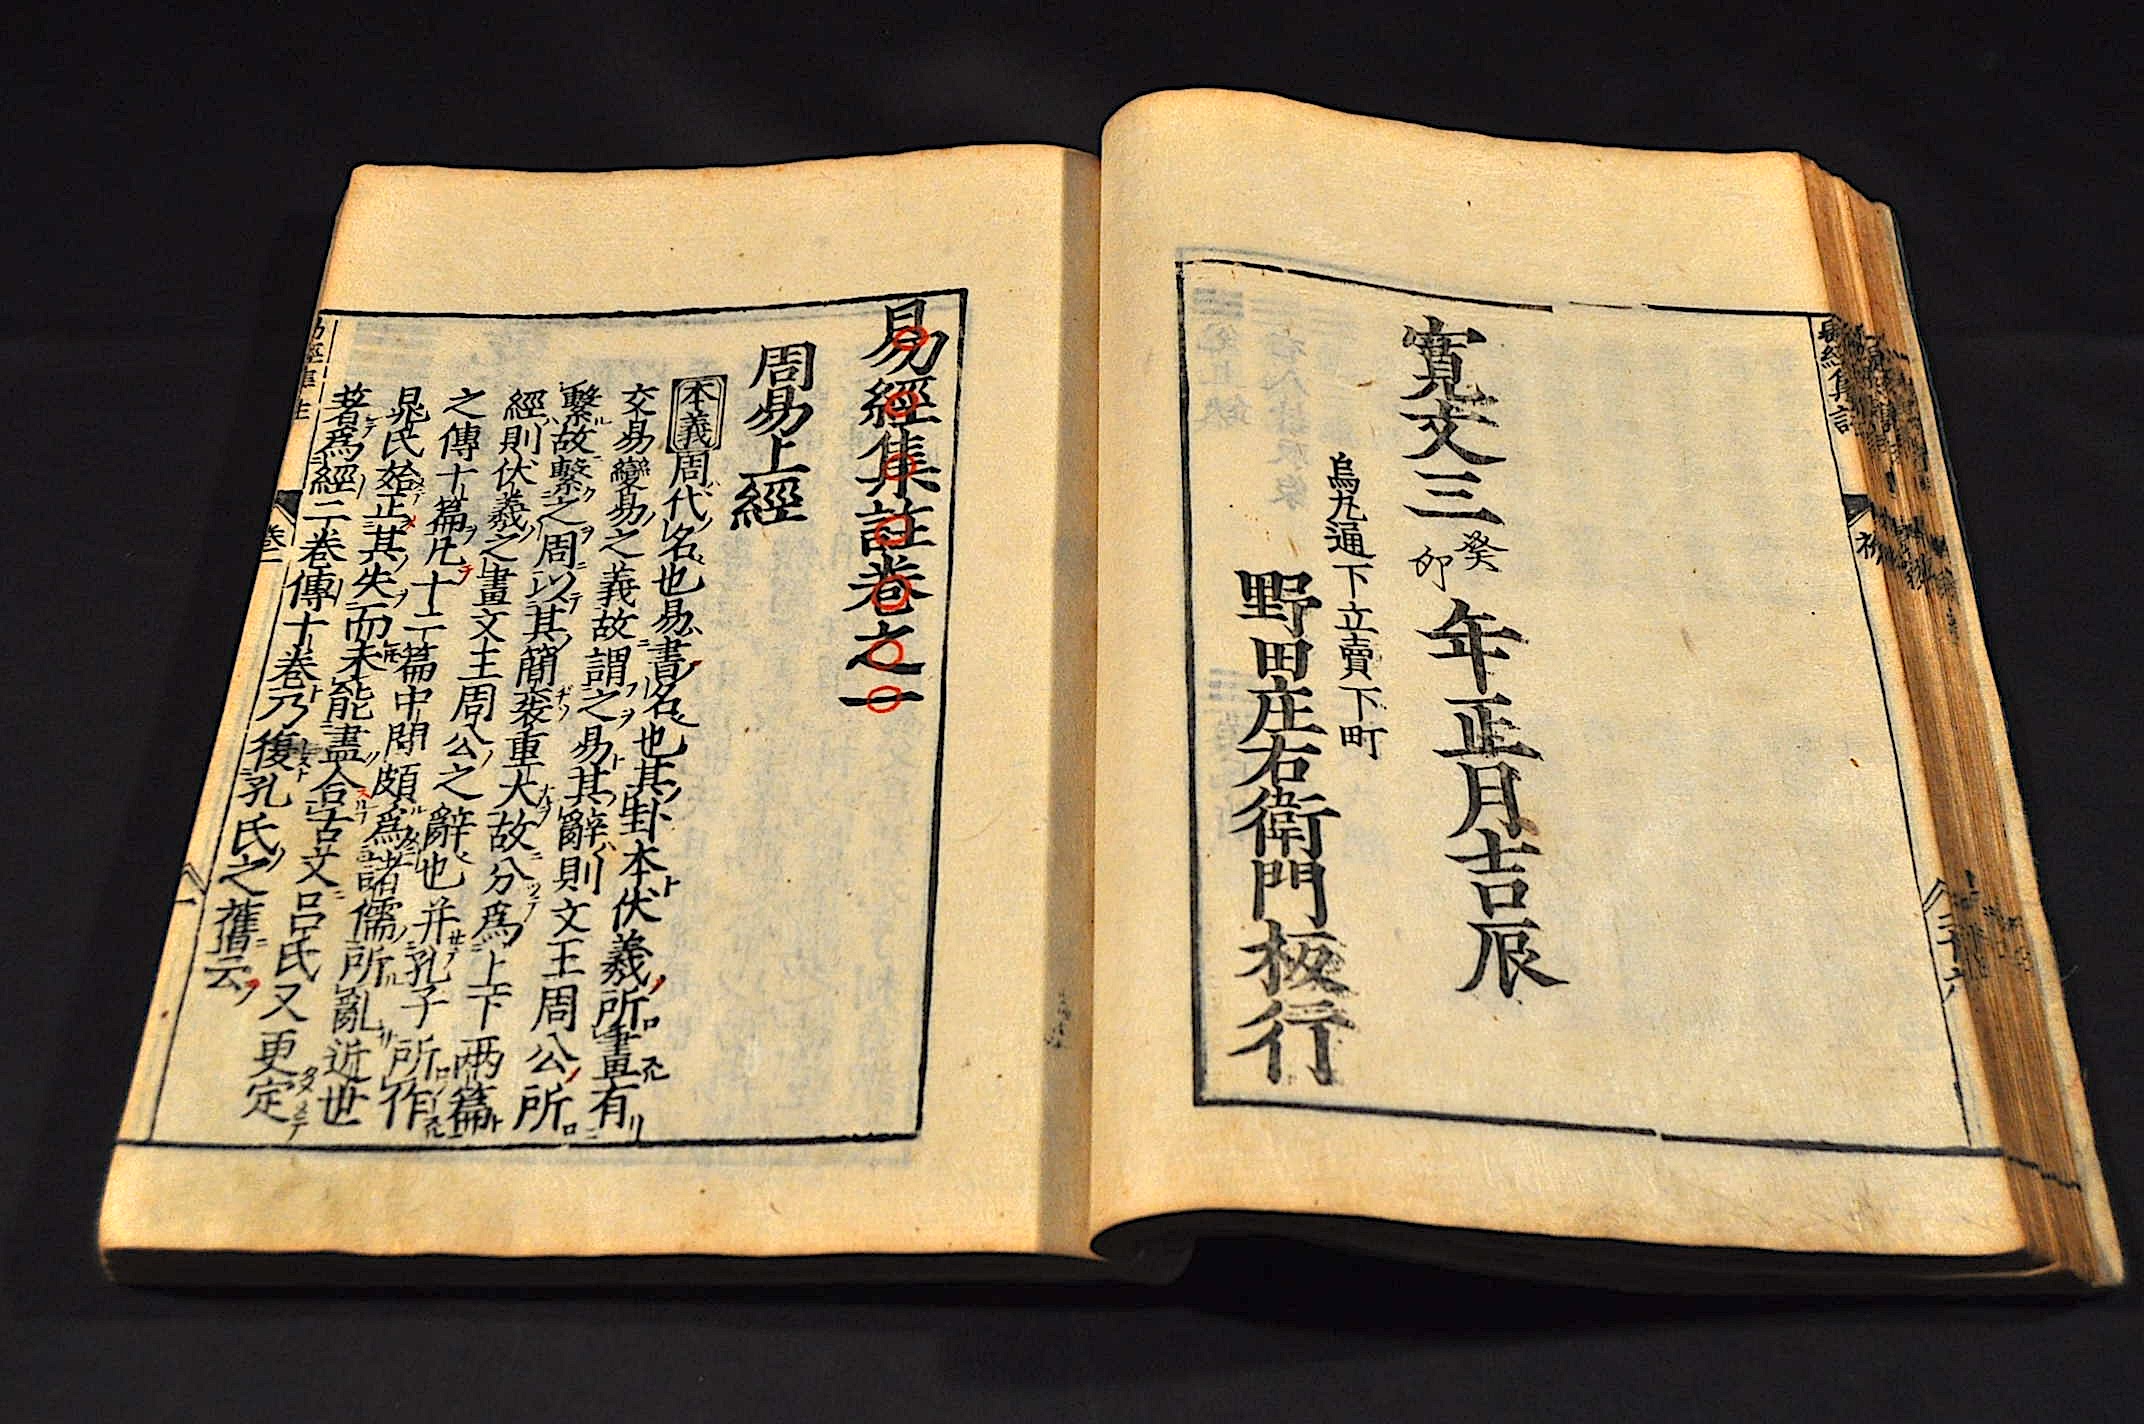 寬文三癸卯年正月吉辰
烏丸通下立賣下町
野田庄右衛門板行
易經集註卷之一
周易上經
本義周代名也易書名也其卦本伏羲所畫有
交易變易之義故謂之易其辭則文王周公所
繫故繫之周以其簡袠重大故分為上下两篇
經則伏羲之畫文王周公之辭也并孔子所作
之傳十篇凢十二篇中間頗為諸儒所亂近世
晁氏始正其失而未能盡合古文呂氏又更定
著為經二卷傳十卷乃復孔氏之舊云